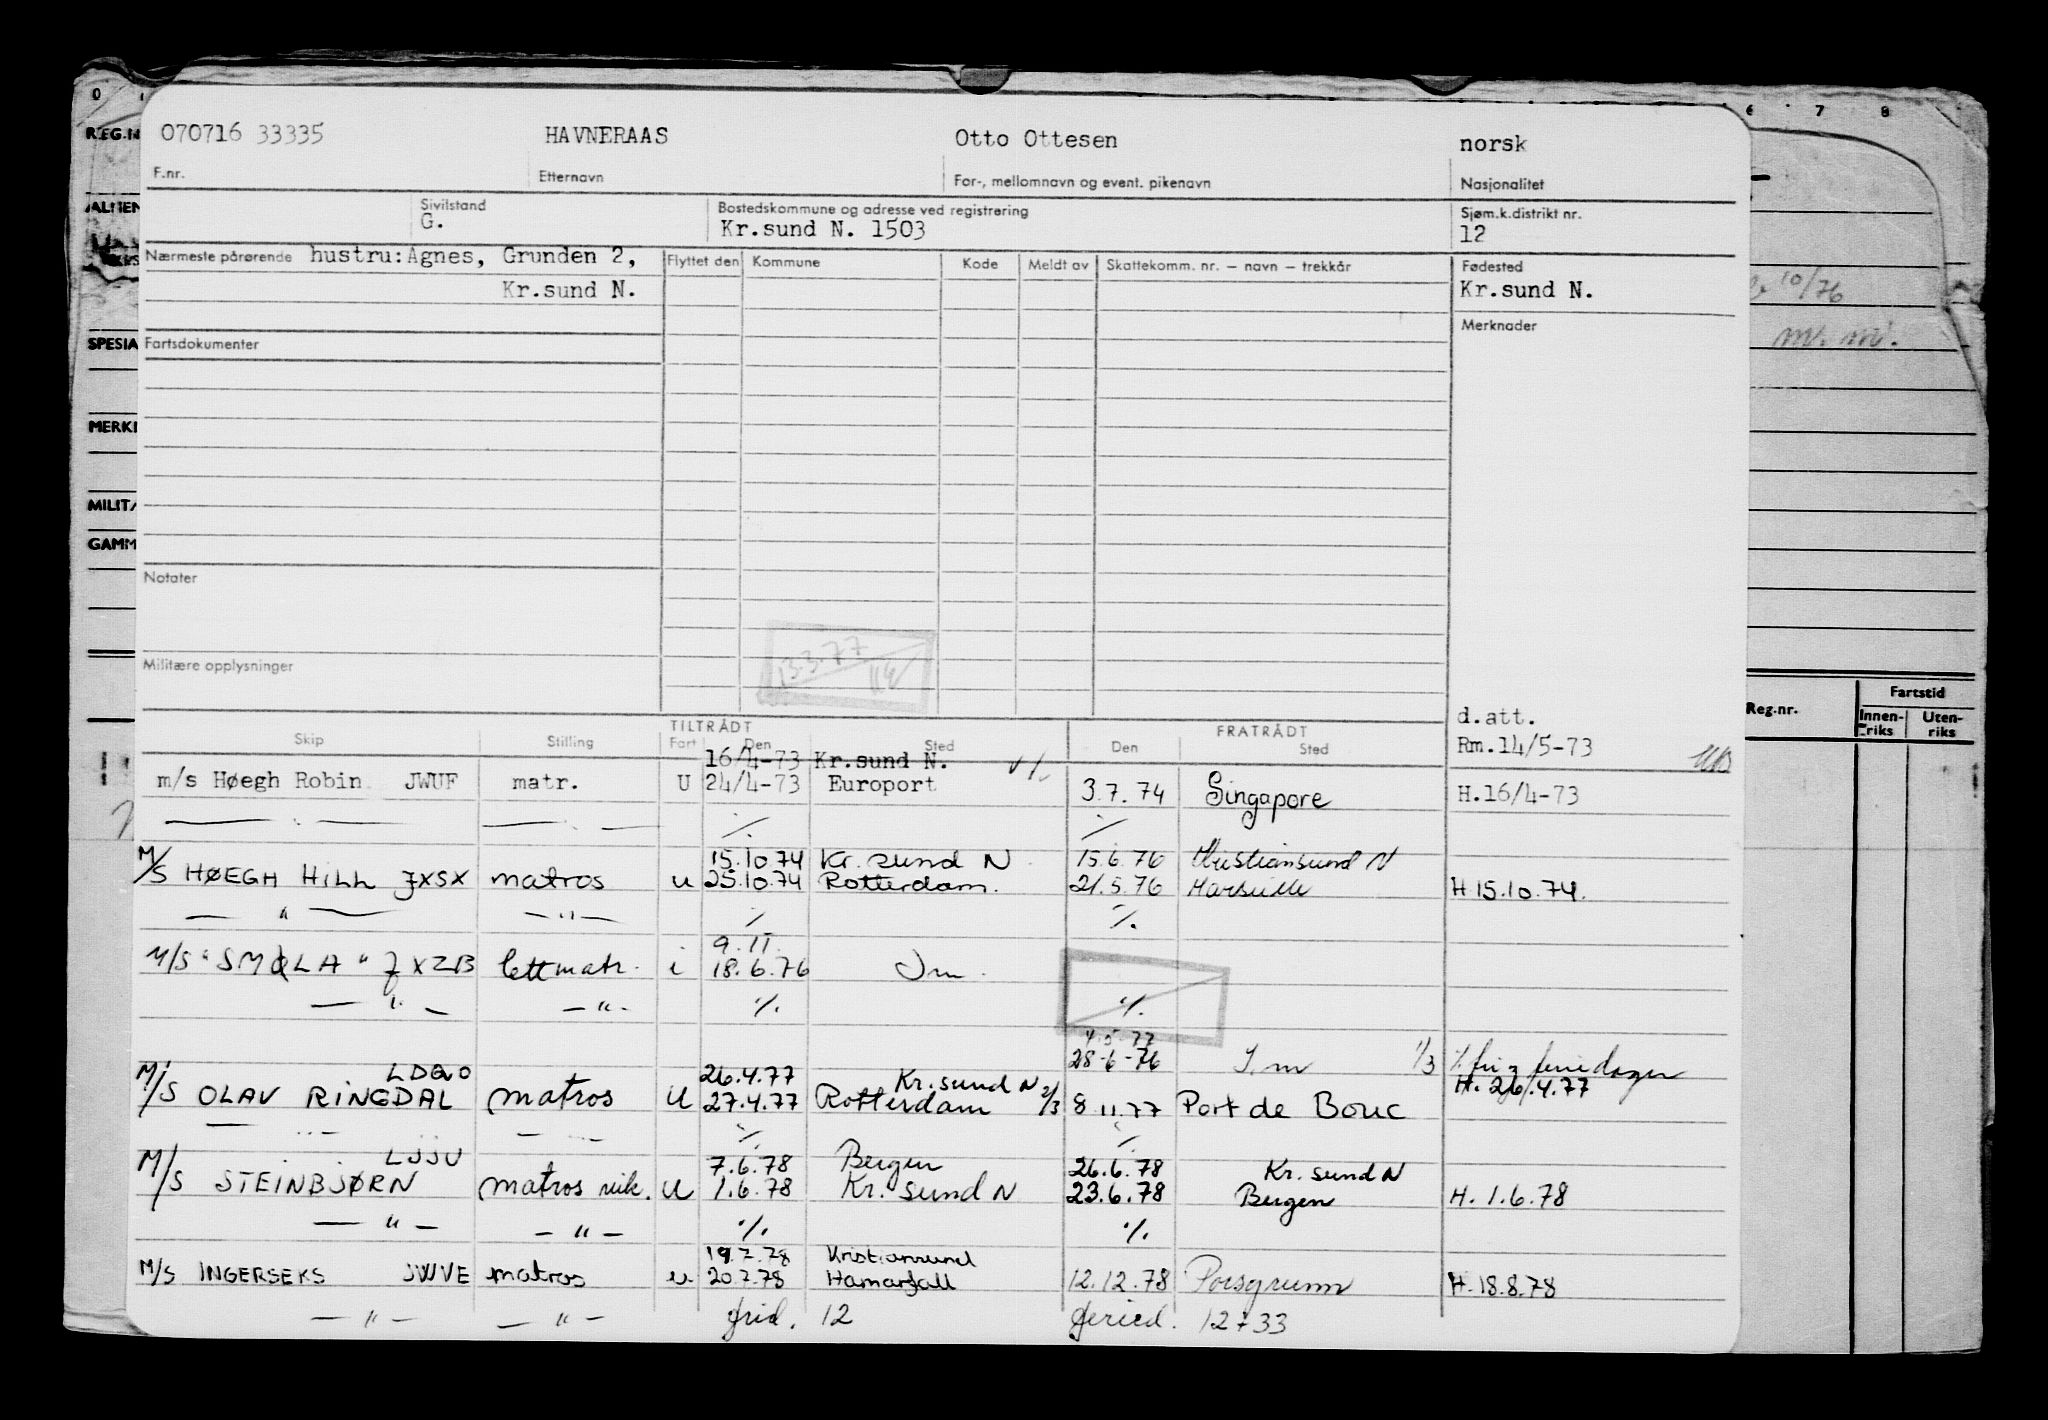 0 6 7 8
REG.N
070716 33335 HAVNERAAS Otto Ottesen norsk
F.nr. Etternavn For-, mellomnavn og event. pikenavn Nasjonalitet
ALMEN
Sivilstand Bostedskommune og adresse ved registrering Sjøm.k.distrikt nr.
G. Kr.sund N. 1503 12
Nærmeste pårørende hustru: Agnes, Grunden 2, Flyttet den Kommune Kode Meldt av Skattekomm. nr. – navn – trekkår Fødested
Kr.sund N. Kr.sund N.
10/76
Merknader
SPESIA Fartsdokumenter
MERKI
MILITÆ
GAMM
Notater
Militære opplysninger
13.3.77
Reg.nr. Fartstid
Innen-riks Uten-riks
TILTRÅDT FRATRÅDT d.att.
Skip Stilling Fart Den Sted Den Sted Rm.14/5-73
16/4-73 Kr.sund N.
m/s Høegh Robin JWUF matr. U 24/4-73 Europort 3.7.74 Singapore H.16/4-73
— " — — — ./. ./.
15.10.74 Kr. sund N 15.6.76 Kristiansund N
M/S HØEGH HILL JXSX matros u 25.10.74 Rotterdam. 21.5.76 Marseille H 15.10.74.
— " — — " — ./. ./.
9.11.
M/S "SMØLA" JXZB lettmatr. i 18.6.76 Sm.
— " — — " — ./. ./.
4.5-77
28-6-76 S.m 1/3 ./. fri = feriedager
LDQO 26.4.77 Kr.sund N H. 26.4.77
M/S OLAV RINGDAL matros U 27.4.77 Rotterdam 2/3 8.11.77 Port de Bouc
— " — — " — ./. ./.
LJJU 7.6.78 Bergen 26.6.78 Kr. sund N
M/S STEINBJØRN matros vik. U 1.6.78 Kr. sund N 23.6.78 Bergen H. 1.6.78
— " — — " — ./. ./.
19.7.78 Kristiansund
M/S INGERSEKS JWVE matros u. 20.7.78 Hamarfall 12.12.78 Porsgrunn H. 18.8.78
— " — — " — frid. 12 feried. 12+33